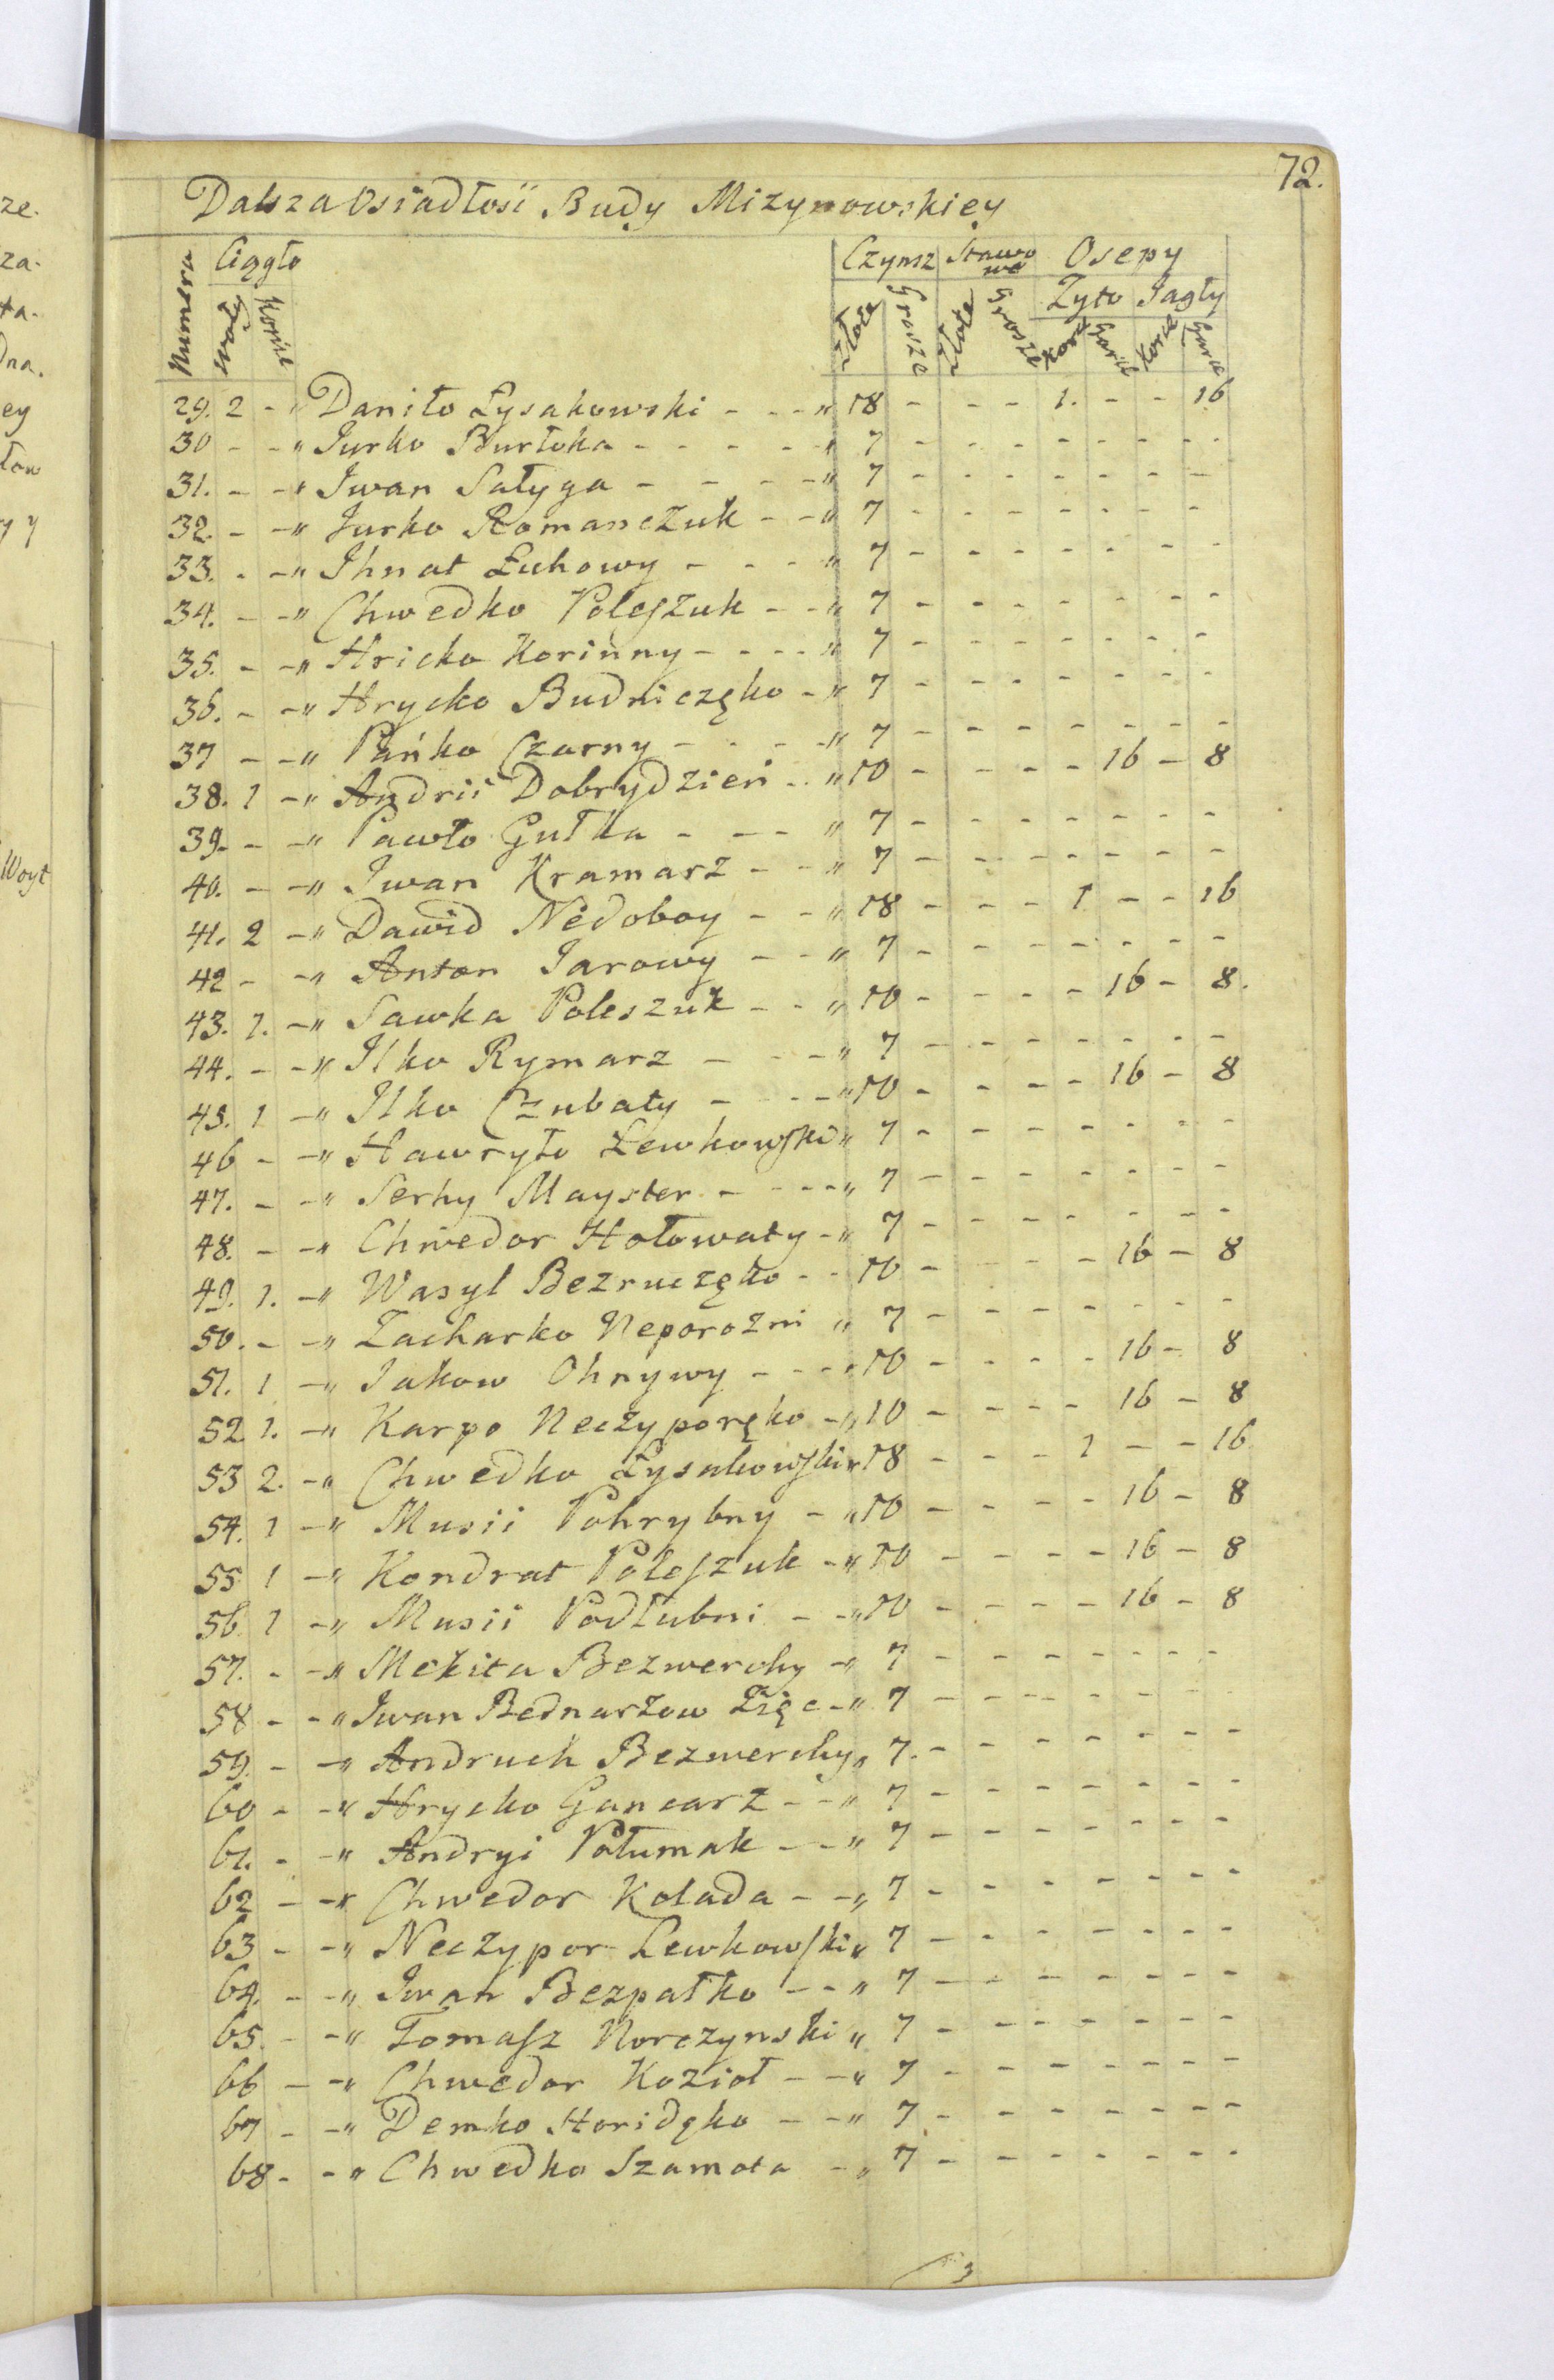 72.
Dalsza Osiadłosii Budy Mizynowskiey
Numera Ciągło Czynsz Stawowe Osepy
woły Konie Złote Grosze Złote Grosze Zyto Jagły
Korce Garce Korce Garce
29. 2 - " Daniło Łysakowski - - - " 18 - - - 1. - - 16
30 - - " Jurko Burłoka - - - - - " 7 - - - - - - -
31. - - " Jwan Sałyga - - - - - " 7 - - - - - - -
32. - - " Jurko Romanczuk - - " 7 - - - - - - -
33. - - " Jhnat Łuhowy - - - " 7 - - - - - - -
34. - - " Chwedko Poleszuk - - " 7 - - - - - - -
35. - - " Hricko Korinny - - - - " 7 - - - - - - -
36. - - " Hrycko Budniczęko - " 7 - - - - - - -
37 - - " Pańko Czarny - - - - " 7 - - - - - - -
38. 1 - " Andrii Dobrydzień - - " 10 - - - - 16 - 8
39. - - " Pawło Gułka - - - - " 7 - - - - - - -
40. - - " Jwan Kramarz - - " 7 - - - - - - -
41. 2 - " Dawid Nedoboy - - " 18 - - - 1 - - 16
42 - - " Anton Jarowy - - " 7 - - - - - - -
43. 1. - " Sawka Poleszuk - - " 10 - - - - 16 - 8.
44. - - " Jlko Rymarz - - - " 7 - - - - - - -
45. 1 - " Jlko Czubaty - - - - " 10 - - - - 16 - 8
46 - - " Hawryło Lewkowski " 7 - - - - - - -
47. - - " Serhy Mayster - - - - " 7 - - - - - - -
48. - - " Chwedor Hołowaty - " 7 - - - - - - -
49. 1. - " Wasyl Bezruczęko - - 10 - - - - 16 - 8
50. - - " Zacharko Neporozni " 7 - - - - - - -
51. 1 - " Jakow Ohnywy - - - " 10 - - - - 16 - 8
52 1. - " Karpo Neczyporęko - " 10 - - - - 16 - 8
53 2. - " Chwedko Łysakowski " 18 - - - 1 - - 16
54. 1 - " Musii Pohrybny - " 10 - - - - 16 - 8
55 1 - " Kondrat Poleszuk - " 10 - - - - 16 - 8
56. 1 - " Musii Podłubni - - " 10 - - - - 16 - 8
57. - - " Mekita Bezwerchy - " 7 - - - - - - -
58 - - " Jwan Bednarzow Zięc - " 7 - - - - - - -
59. - - " Andruch Bezwerchy " 7. - - - - - - -
60 - - " Hrycko Gancarz - - " 7 - - - - - - -
61. - - " Andryi Połumak - - " 7 - - - - - - -
62 - - " Chwedor Kolada - - " 7 - - - - - - -
63 - - " Neczypor Lewkowski " 7 - - - - - - -
64. - - " Jwan Bezpałko - - " 7 - - - - - - -
65. - - " Tomasz Norczynski " 7 - - - - - - -
66 - - " Chwedor Kozioł - - " 7 - - - - - - -
67 - - " Demko Horidęko - - " 7 - - - - - - -
68 - - " Chwedko Szamota - " 7 - - - - - - -
ze.
za.
ta.
dna.
ey
łow
y y
Woyt